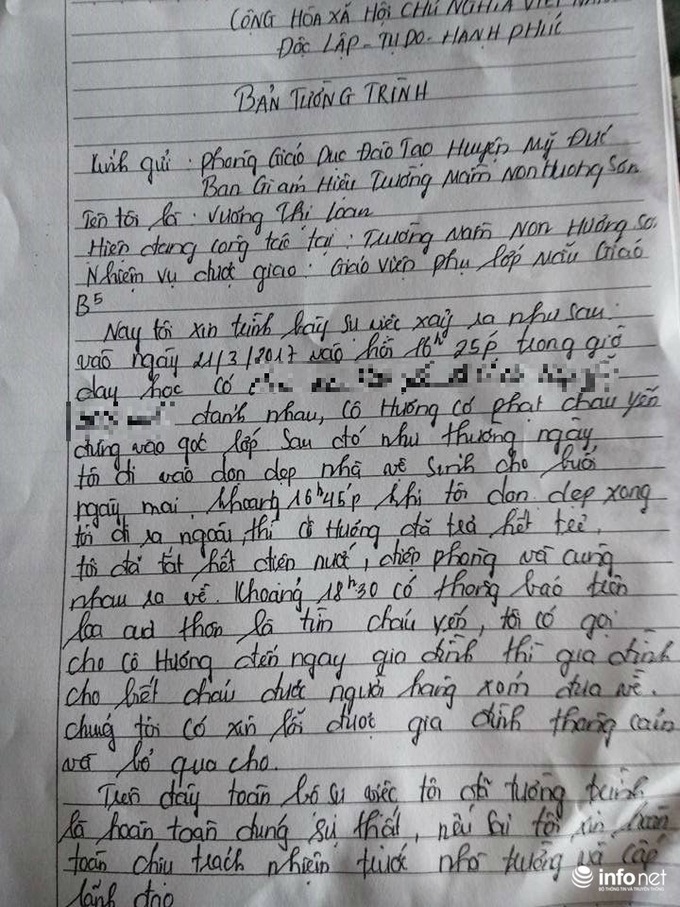 CỘNG HÒA XÃ HỘI CHỦ NGHĨA VIỆT NAM
ĐỘC LẬP - TỰ DO - HẠNH PHÚC
BẢN TƯỜNG TRÌNH
Kính gửi : Phòng Giáo Dục Đào Tạo Huyện Mỹ Đức
Ban Giám Hiệu Trường Mầm Non Hương Sơn
Tên tôi là : Vương Thị Loan
Hiện đang công tác tại : Trường Mầm Non Hương Sơ
Nhiệm vụ được giao : Giáo viên phụ lớp Mẫu Giáo
B5
Nay tôi xin trình bày sự việc xảy ra như sau:
vào ngày 21/3/2017 vào hồi 16h 25p trong giờ
dạy học có
đánh nhau, cô Hương có phạt cháu yến
đứng vào góc lớp sau đó như thường ngày
tôi đi vào dọn dẹp nhà vệ sinh cho buổi
ngày mai. khoảng 16h45p khi tôi dọn dẹp xong
tôi đi ra ngoài, thì cô Hương đã trả hết trẻ.
tôi đã tắt hết điện nước, chiệp phong và cùng
nhau ra về. Khoảng 18h30 có thông báo trên
loa thôn là tìm cháu yến, tôi có gọi
cho cô Hương đến ngay gia đình thì gia đình
cho biết cháu được người hàng xóm đưa về.
chúng tôi có xin lỗi được gia đình thông cảm
và bỏ qua cho.
Trên đây toàn bộ sự việc tôi đã tường trình
là hoàn toàn đúng sự thật, nếu sai tôi xin hoàn
toàn chịu trách nhiệm trước nhà trường và cấp
lãnh đạo
infonet
BỘ THÔNG TIN VÀ TRUYỀN THÔNG